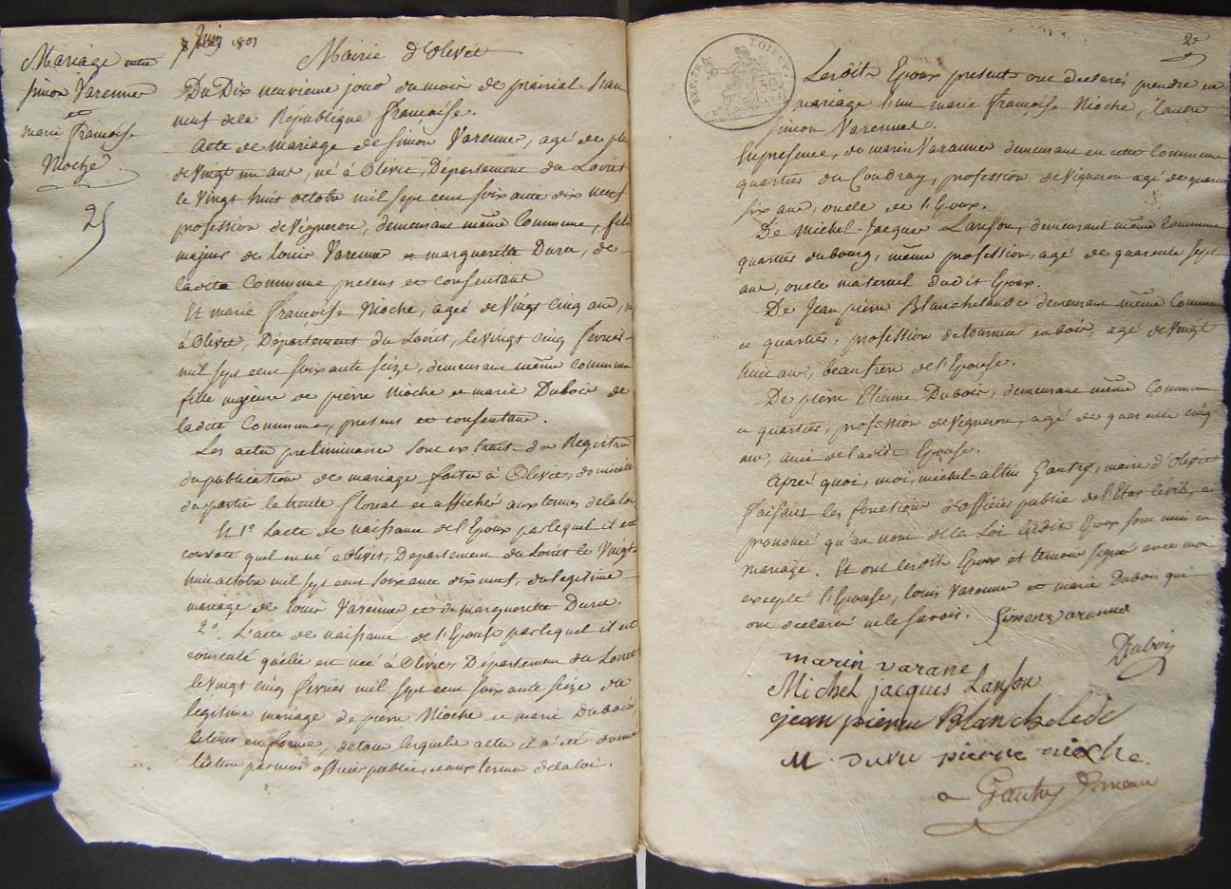 Juin 1801
Mairie d'Olivet
Mariage entre
Simon Varenne
et
marie françoise
Nioche
25
Du Dix neuvieme jour du mois de prairial l'an
neuf de la République françoise.
Acte de mariage de Simon Varenne, agé de plus
de Vingt un ans, né à Olivet, Département du Loiret
le Vingt huit octobre mil sept cent soixante dix neuf
profession de Vigneron, demeurant même Commune, fils
majeur de louis Varenne et marguerite Duru, de
ladite Commune presens et consentant
Et marie françoise Nioche, agée de Vingt Cinq ans, née
à Olivet, Département du Loiret, le vingt cinq fevrier
mil sept cent soixante seize, demeurant même commune
fille majeure de pierre Nioche et marie Dubois de
ladite Commune, presens et consentans.
Les actes preliminaires sont extrait du Registre
de publication de mariage faite à Olivet, domicile
des partie le trente floreal et affiché aux termes de la loi
Et 1°. L'acte de naissance de l'Epoux par lequel il est
constaté quil est né à Olivet, Département du Loiret le Vingt
huit octobre mil sept cent soixante dix neuf, du legitime
mariage de louis Varenne et de marguerite Duru.
2°. L'acte de naissance de l'Epouse par lequel il est
constaté qu'elle est née à Olivet, Département du Loiret
le vingt cinq fevrier mil sept cent soixante seize du
legitime mariage de pierre Nioche et marie Dubois
le tout en forme, de tous lesquels actes il a été donné
lecture par moi officier public, aux termes de la loi.
Lesdits Epoux presents ont declaré prendre en
mariage l'un marie françoise Nioche, l'autre
Simon Varenne.
En presence, de marin Varanne demeurant en cette Commune
quartier du Coudray, profession de Vigneron agé de quarante
six ans, oncle de l'Epoux.
De Michel-Jacques Lanson, demeurant même Commune
quartier du bourg, même profession, agé de quarente sept
ans, oncle maternel dudit Epoux.
De Jean pierre Blanchelande demeurant même Commune
et quartier, profession de tourneur en bois, agé de Vingt
huit ans, beau frere de l'Epouse.
De pierre Etienne Dubois, demeurant même Commune
et quartier, profession de Vigneron, agé de quarente cinq
ans, ami de ladite Epouse.
Après quoi, moi, michel-altin Gautry, maire d'Olivet
faisant les fonctions d'officier public de l'Etat Civil, ai
prononcé qu'au nom de la Loi lesdits Epoux sont unis en
mariage. Et ont lesdits Epoux et temoins signé avec moi
excepté l'Epouse, louis Varenne et marie Dubois qui
ont declaré ne le savoir. Simon varenne
Dubois
marin varane
Michel jacques Lanson
jean pierre Blanchelede
M. duru pierre nioche
Gautry